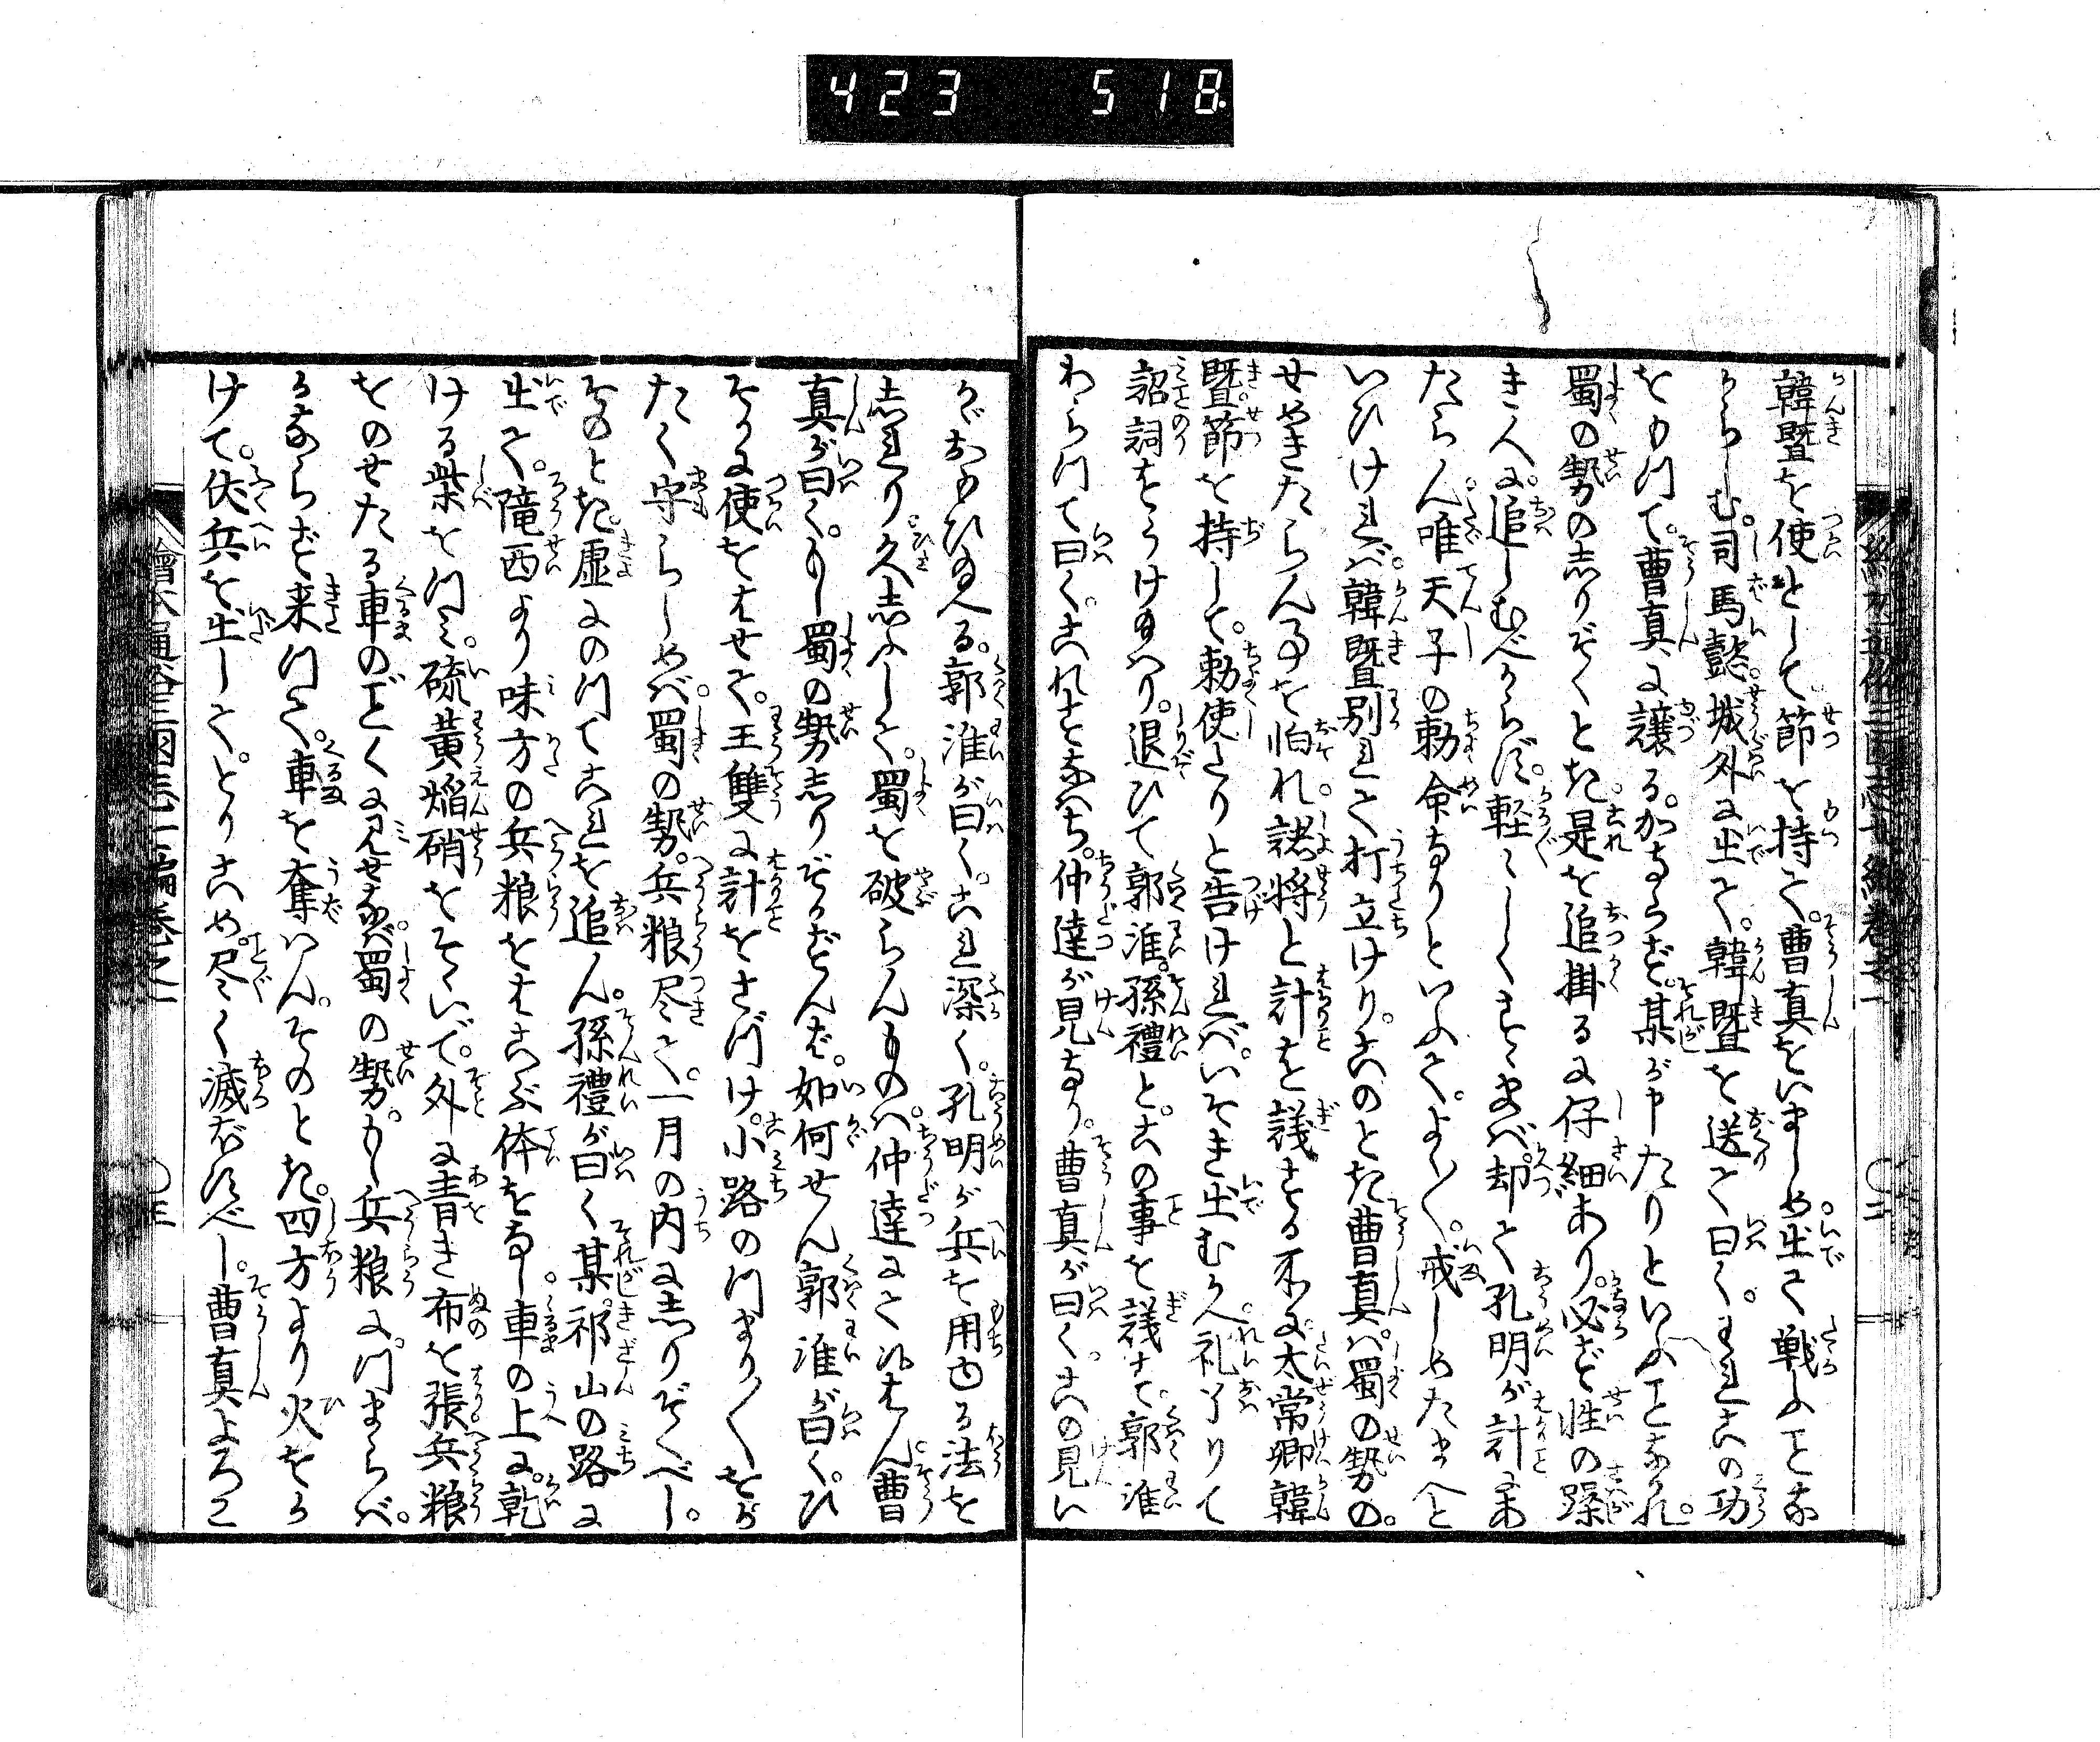 423 518
韓暨を使として節を持て。曹真をいましめ出て戦ふことな
からしむ。司馬懿城外に出て。韓暨を送て曰く。われこの功
をもつて。曹真に譲る。かならず某が申たりといふことなかれ。
蜀の勢のしりぞくとき。是を追掛るに仔細あり。必ず性の躁
き人に。追しむべからず。軽〻しくすゝまば。却て孔明が計に来
たらん。唯天子の勅命なりといふて。よく〳〵。戒しめたまへと
いひければ。韓暨別れて打立けり。このとき曹真は。蜀の勢の。
せめきたらん事を怕れ。諸将と計を議する所に。太常卿韓
暨。節を持して。勅使たりと告ければ。いそぎ出むかへ。礼了りて
詔詞をうけ給へり。退ひて郭淮。孫禮と。この事を議すて。郭淮
わらつて曰く。これすなはち。仲達が見なり。曹真が曰く。この見い
かゞおもひ給へる。郭淮が曰く。これ深く。孔明が兵を用ゆる法を
しれり。久しふして。蜀を破らんものは。仲達にて候はん。曹
真が曰く。もし蜀の勢しりぞかずんば。如何せん。郭淮が曰く。ひ
そかに使をはせて。王雙に計をさづけ。小路のつまり〳〵をか
たく守らしめば。蜀の勢。兵粮尽て。一月の内にしりぞくべし。
そのとき。虚にのつてこれを追ん。孫禮が曰く某。祁山の路に
出て。隴西より味方の兵粮をはこぶ体をなし。車の上に。乾
ける柴をつみ。硫黄焔硝をそゝいで。外に青き布を張。兵粮
をのせたる車のごとくに見せなば。蜀の勢。もし兵粮に。つまらば。
かならず来つて。車を奪はん。そのとき。四方より火をか
けて。伏兵を出して。とりこめ。尽く滅ぼすべし。曹真よろこ
繪本通俗三國志七編巻之一
〇三